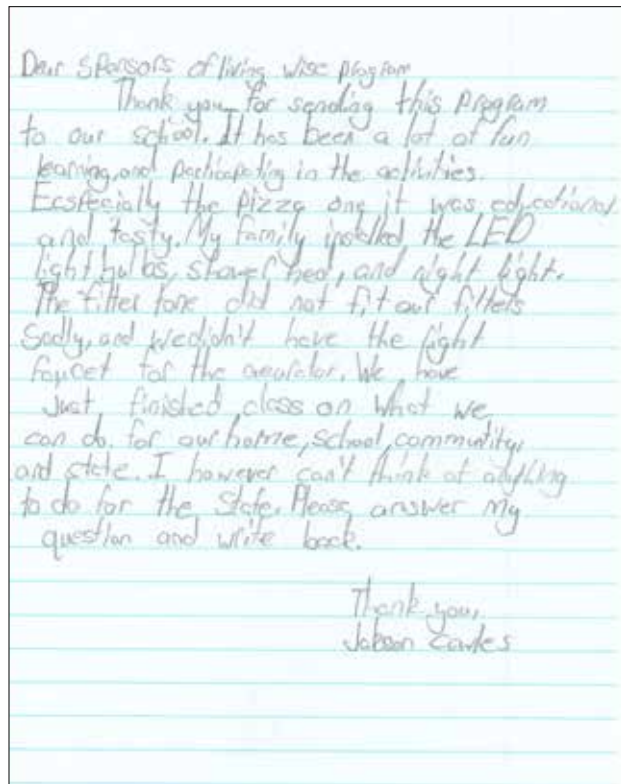 Dear Sponsors of living wise program
Thank you for sending this program
to our school. It has been a lot of fun
learning, and participating in the activities.
Ecspecially the pizza one it was educational
and tasty. My family installed the LED
light bulbs, shower hed, and night light.
The filter tone did not fit our filters
Sadly, and we didn't have the right
faucet for the aeurator. We have
Just finished class on what we
can do for our home, school, community,
and state. I however can't think of anything
to do for the State. Please answer my
question and write back.
Thank you,